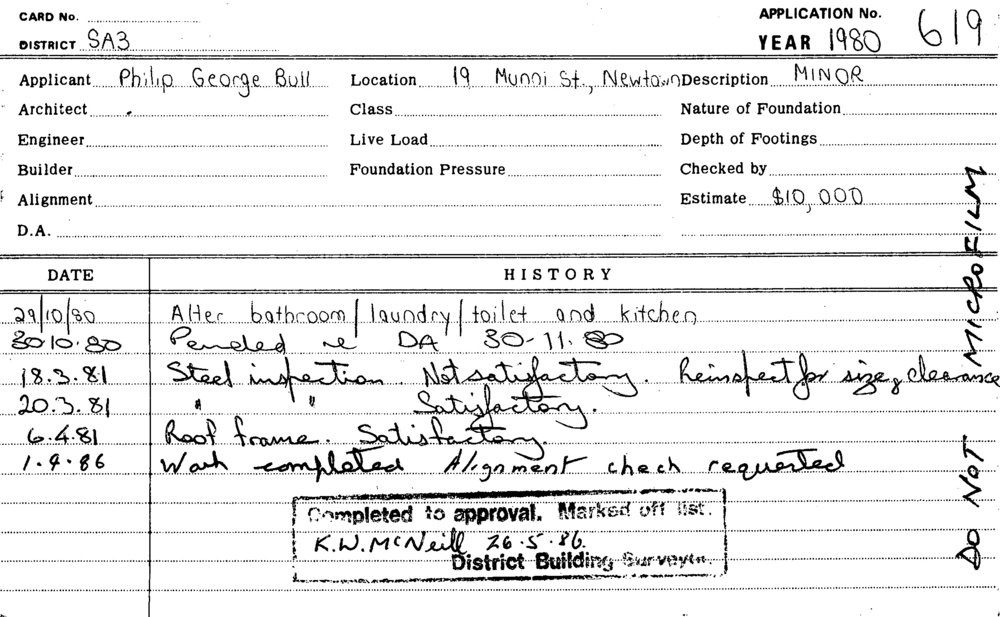 CARD No.
APPLICATION No. 619
DISTRICT SA3
YEAR 1980
Applicant Philip George Bull Location 19 Munni St., Newtown Description MINOR
Architect Class Nature of Foundation
Engineer Live Load Depth of Footings
Builder Foundation Pressure Checked by
Alignment Estimate $10,000
D.A.
DATE HISTORY
29/10/80 Alter bathroom/laundry/toilet and kitchen
30.10.80 Pended re DA 30-11-80
18.3.81 Steel inspection. Not satisfactory. Reinspect for size & clearance
20.3.81 " " Satisfactory.
6.4.81 Roof frame. Satisfactory.
1.4.86 Work completed Alignment check requested
Completed to approval. Marked off list.
K.W. McNeill 26.5.86.
District Building Surveyor.
DO NOT MICROFILM